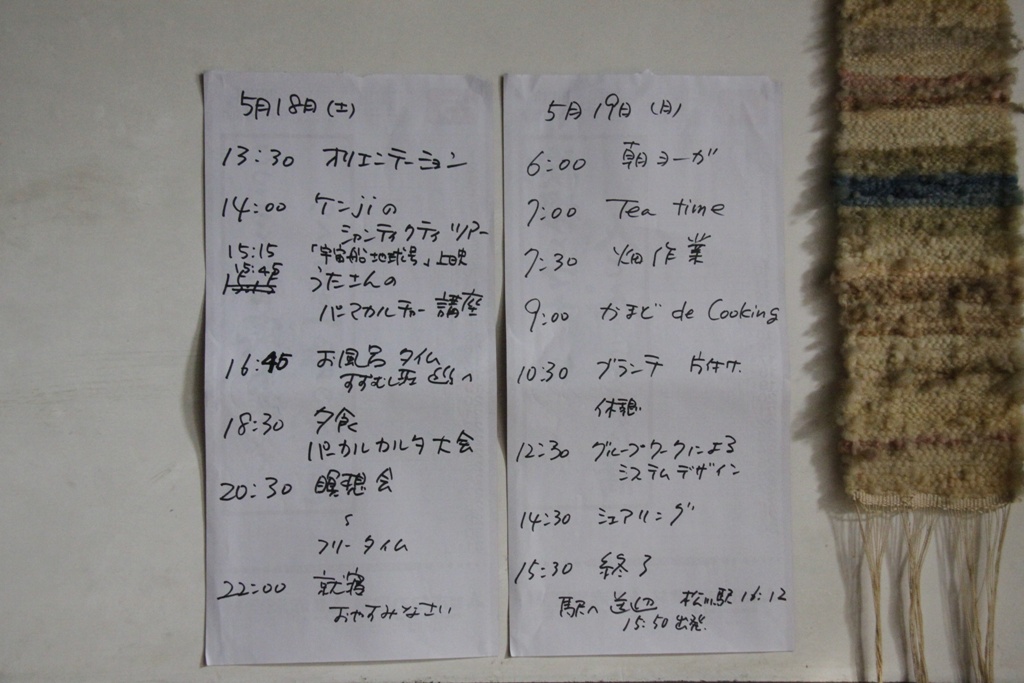 5月18日(土)
13:30 オリエンテーション
14:00 ケンjiの
シャンティクティツアー
15:15 「宇宙船地球号」上映
15:45
うたさんの
パーマカルチャー講座
16:45 お風呂タイム
すずむし荘へ
18:30 夕食
パーカルカルタ大会
20:30 瞑想会
フリータイム
22:00 就寝
おやすみなさい
5月19日(月)
6:00 朝ヨーガ
7:00 Tea time
7:30 畑作業
9:00 かまど de Cooking
10:30 ブランチ 片付け
休憩
12:30 グループワークによる
システムデザイン
14:30 シェアリング
15:30 終了
駅へ送迎 松川駅16:12
15:50出発